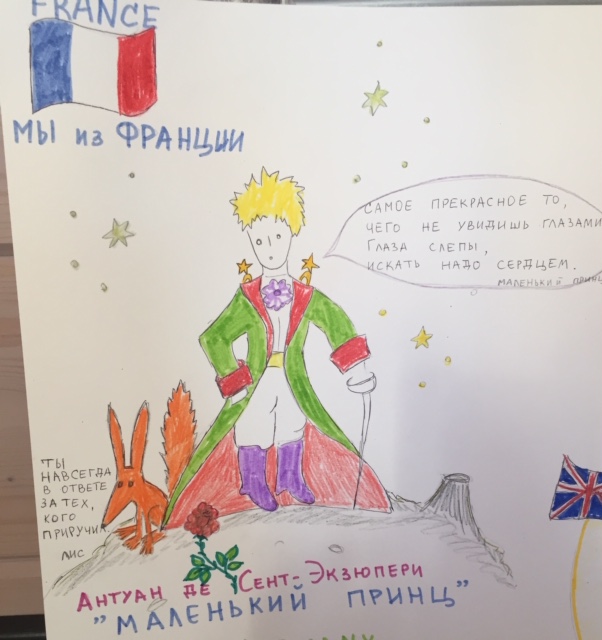 FRANCE
МЫ из ФРАНЦИИ
САМОЕ ПРЕКРАСНОЕ ТО,
ЧЕГО НЕ УВИДИШЬ ГЛАЗАМИ
ГЛАЗА СЛЕПЫ,
ИСКАТЬ НАДО СЕРДЦЕМ.
МАЛЕНЬКИЙ ПРИНЦ
ТЫ
НАВСЕГДА
В ОТВЕТЕ
ЗА ТЕХ,
КОГО
ПРИРУЧИЛ.
ЛИС
АНТУАН ДЕ СЕНТ-ЭКЗЮПЕРИ
"МАЛЕНЬКИЙ ПРИНЦ"